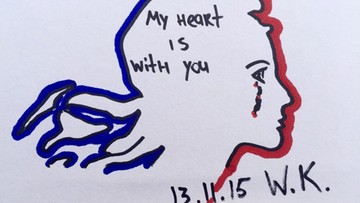 My HEART
iS
WITH YOU
13.11.15 W.K.